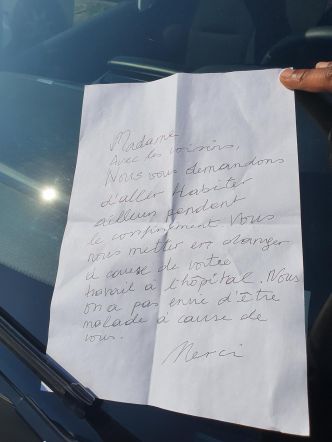 Madame
Avec les voisins,
Nous vous demandons
d'aller habiter
ailleur pendant
le confinement Vous
nous metter en danger
a cause de votre
travail a l'hôpital. Nous
on a pas envie d'être
malade a cause de
vous.
Merci